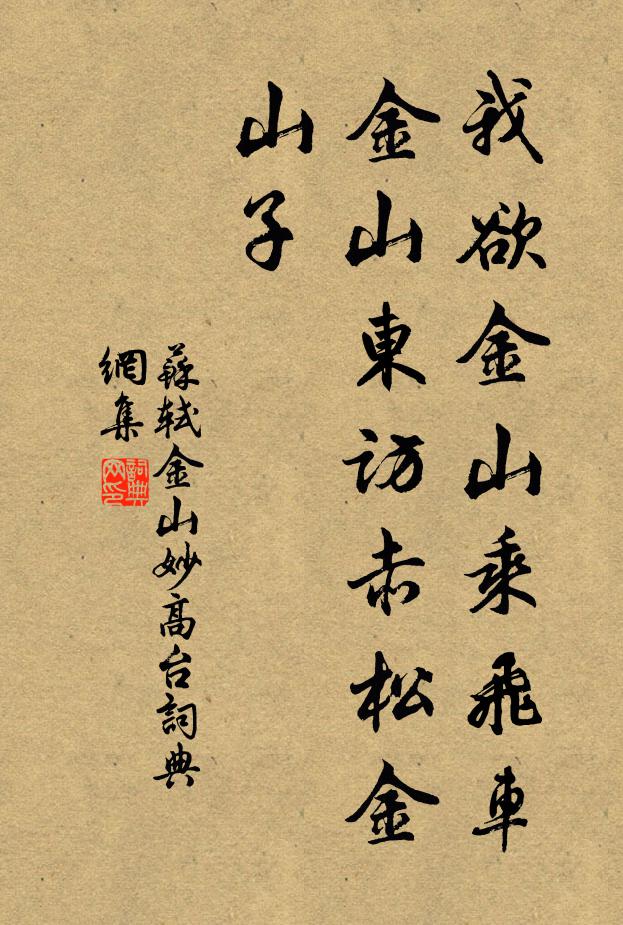 我欲金山乘飛車
金山東訪赤松金
山子
蘇軾金山妙高台詞典
網集
詞典
网印